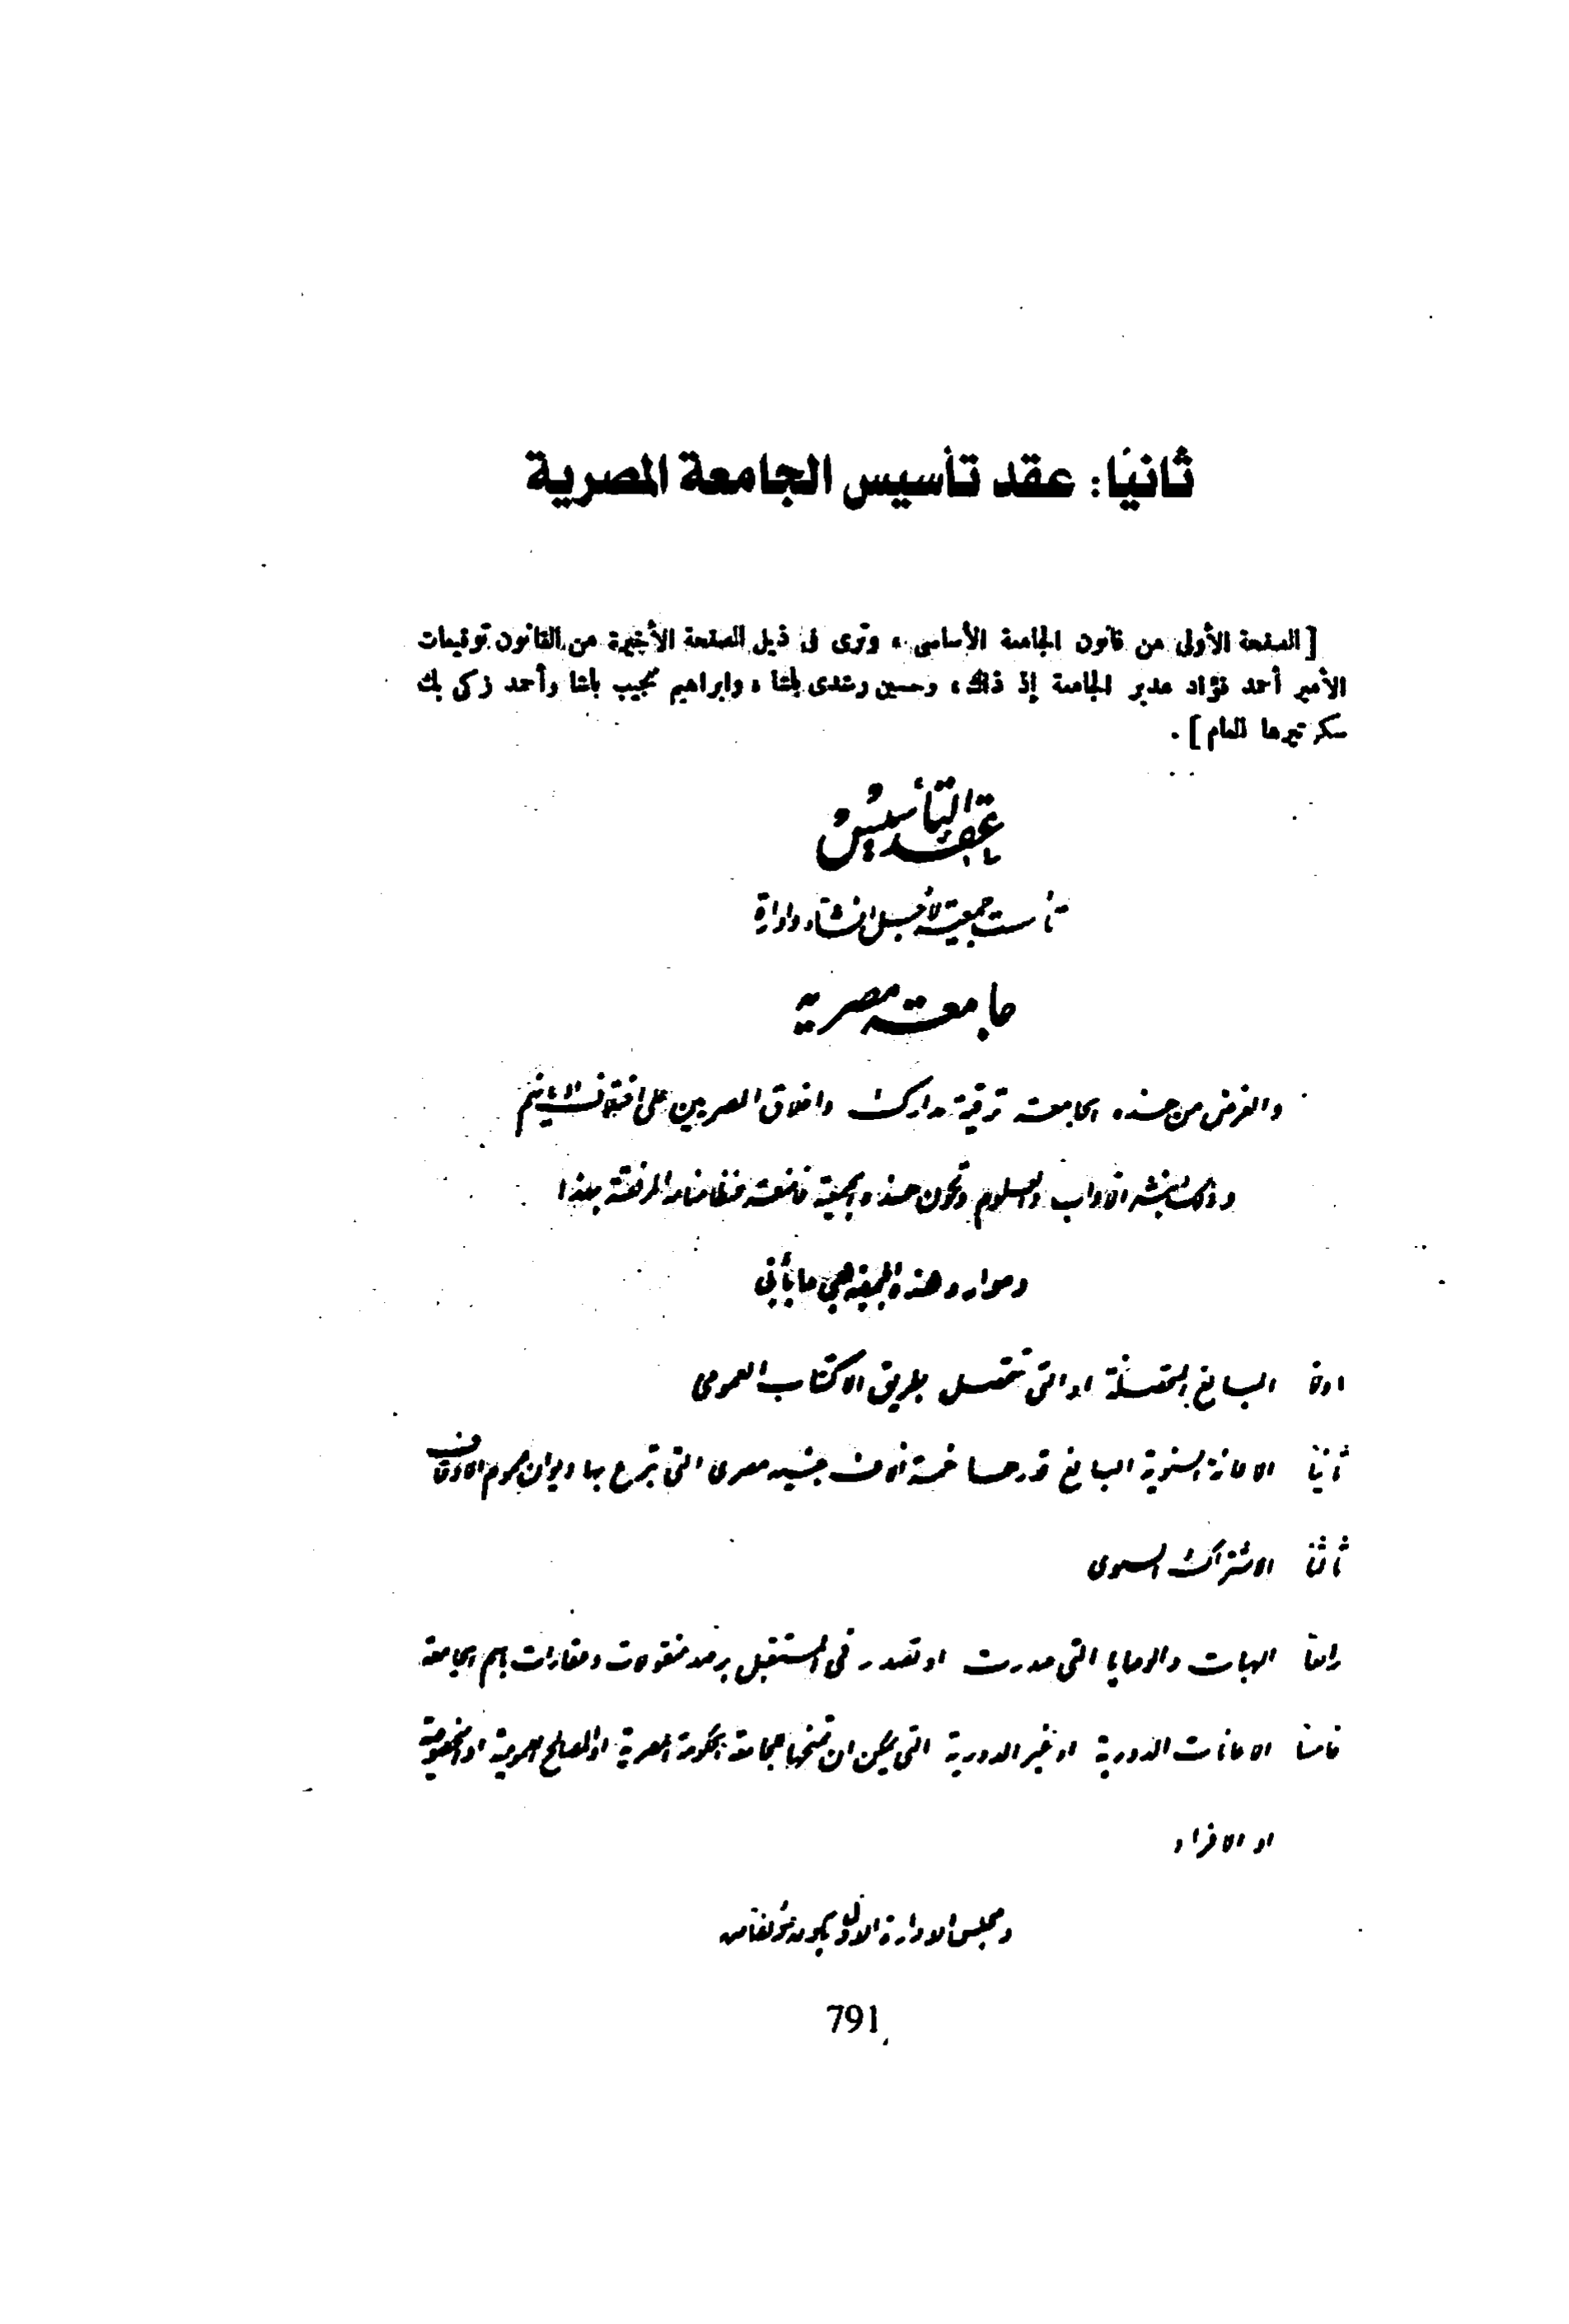 ثانيًا: عقد تأسيس الجامعة المصرية
[الصفحة الأولى من قانون الجامعة الأساسى، وترى فى ذيل الصفحة الأخيرة من القانون توقيعات
الأمير أحمد فؤاد مدير الجامعة إذ ذاك، وحسين رشدى باشا، وابراهيم نجيب باشا وأحمد زكى بك
سكرتيرها العام].
عقد التأسيس
تأسست جمعية لأجل انشاء وادارة
جامعة مصرية
والغرض من هذه الجامعة ترقية مدارك واخلاق المصريين على اختلاف اديانهم
وذلك بنشر الآداب والعلوم وتكون هذه الجمعية خاضعة لنظامنامه المرفقة بهذا
وموارد هذه الجمعية هى ما يأتى
اولا المبالغ المتحصلة او التى تتحصل بطريق الاكتتاب العمومى
ثانيا الاعانة السنوية البالغ قدرها خمسة آلاف جنيه مصرى التى تبرع بها ديوان عموم الاوقاف
ثالثا الاشتراك السنوى
رابعا الهبات والوصايا التى صدرت او تصدر فى المستقبل برصد منقولات وعقارات باسم الجامعة
خامسا الاعانات الدورية او غير الدورية التى يمكن ان تمنحها للجامعة الحكومة المصرية او المصالح العمومية او الخصوصية
او الافراد
ومجلس الادارة الاول يكون مؤلفا من
791